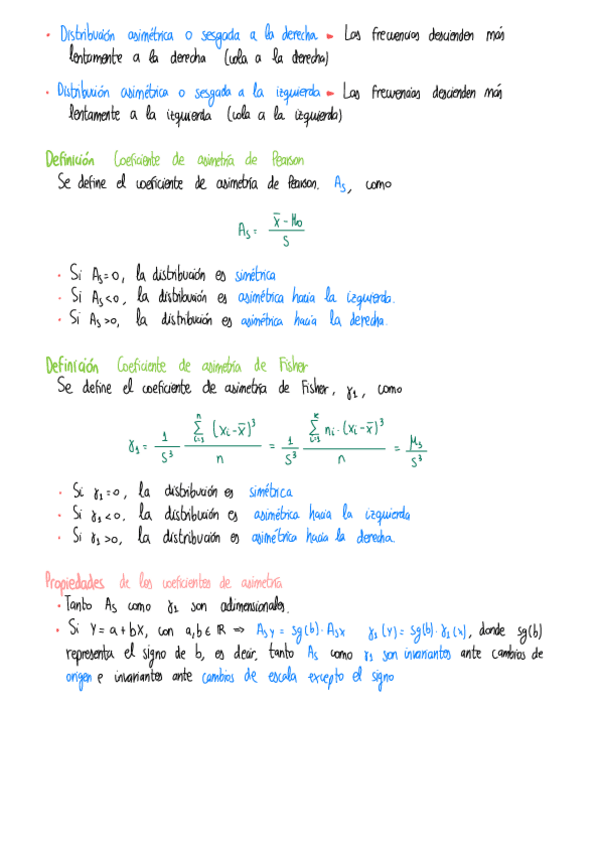 · Distribución asimétrica o sesgada a la derecha - Las frecuencias descienden más
lentamente a la derecha (cola a la derecha)
· Distribución asimétrica o sesgada a la izquierda - Las frecuencias descienden más
lentamente a la izquierda (cola a la izquierda)
Definición Coeficiente de asimetría de Pearson
Se define el coeficiente de asimetría de Pearson, As, como
As = (x̄ - Mo) / S
· Si As = 0, la distribución es simétrica
· Si As < 0, la distribución es asimétrica hacia la izquierda.
· Si As > 0, la distribución es asimétrica hacia la derecha.
Definición Coeficiente de asimetría de Fisher
Se define el coeficiente de asimetría de Fisher, γ1, como
γ1 = 1/S³ · (Σ_{i=1}^{n} (xi - x̄)³) / n = 1/S³ · (Σ_{i=1}^{k} ni · (xi - x̄)³) / n = μ3/S³
· Si γ1 = 0, la distribución es simétrica
· Si γ1 < 0, la distribución es asimétrica hacia la izquierda
· Si γ1 > 0, la distribución es asimétrica hacia la derecha.
Propiedades de los coeficientes de asimetría
· Tanto As como γ1 son adimensionales.
· Si Y = a + bX, con a, b ∈ ℝ ⇒ AsY = sg(b) · AsX γ1(Y) = sg(b) · γ1(X), donde sg(b)
representa el signo de b, es decir, tanto As como γ1 son invariantes ante cambios de
origen e invariantes ante cambios de escala excepto el signo